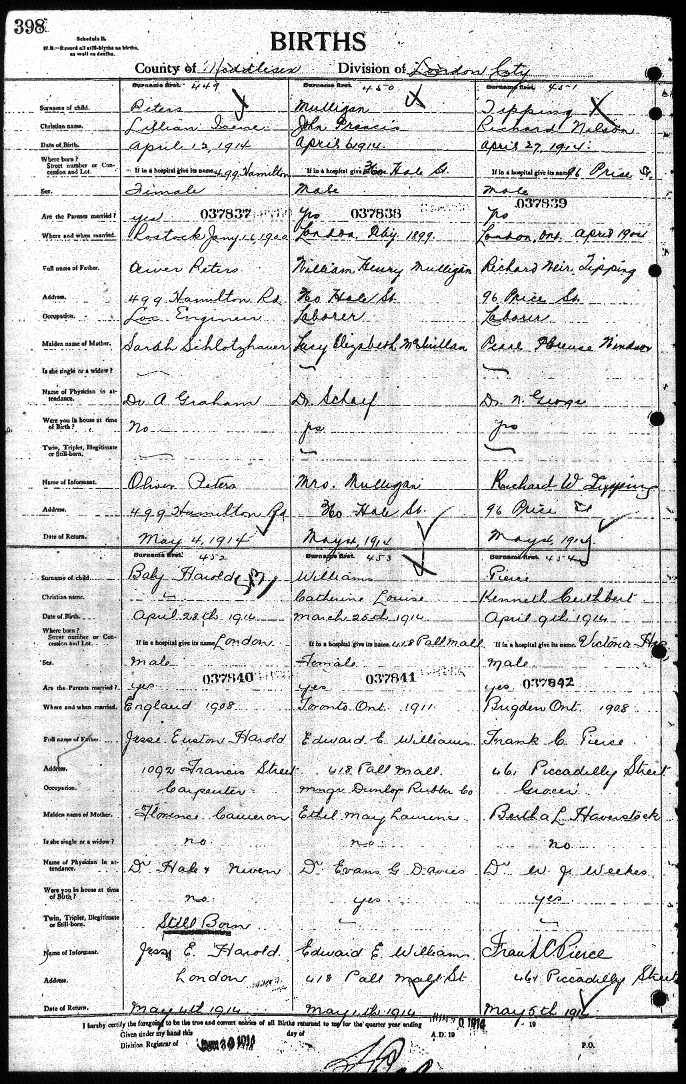 398
Schedule B.
N.B.—Record all still-births as births, as well as deaths.
BIRTHS
County of Middlesex Division of London City
Surname first. 449 Surname first. 450 Surname first. 451
Surname of child. Peters Mulligan Tipping
Christian name. Lillian Irene John Francis Richard Nelson
Date of Birth. April 12, 1914 April 6 1914. April 27, 1914.
Where born? Street number or Concession and Lot. If in a hospital give its name 499 Hamilton If in a hospital give its name 360 Hale St. If in a hospital give its name 96 Price St.
Sex. Female Male Male
Are the Parents married? yes 037837 yes 037838 yes 037839
Where and when married. Rostock Jany 16, 1900 London 1899. London, Ont. April 1904
Full name of Father. Peters William Henry Mulligan Richard Weir Tipping
Address. 499 Hamilton Rd. Hale St. 96 Price St.
Occupation. Loc. Engineer Laborer Laborer
Maiden name of Mother. Sarah Schlotzhauer Lucy Elizabeth McMillan Pearl Florence Windsor
Is she single or a widow?
Name of Physician in attendance. Dr A Graham Dr. Scharf Dr. N. George
Were you in house at time of Birth? No yes yes
Twin, Triplet, Illegitimate or Still-born.
Name of Informant. Oliver Peters Mrs. Mulligan Richard W Tipping
Address. 499 Hamilton Rd 360 Hale St. 96 Price St
Date of Return. May 4, 1914 May 4, 1914 May 4, 1914
Surname first. 452 Surname first. 453 Surname first. 454
Surname of child. Baby Harold Williams Pierce
Christian name. Catherine Louise Kenneth Cuthbert
Date of Birth. April 28th 1914 March 25th 1914 April 9th 1914
Where born? Street number or Concession and Lot. If in a hospital give its name London If in a hospital give its name 418 Pall Mall If in a hospital give its name Victoria Hos,
Sex. Male Female Male
Are the Parents married? yes 037840 yes 037841 yes 037842
Where and when married. England 1908 Toronto Ont 1911 Brigden Ont 1908
Full name of Father. Jesse Euston Harold Edward E Williams Frank C Pierce
Address. 1092 Francis Street 418 Pall Mall 461 Piccadilly Street
Occupation. Carpenter Mngr Dunlop Rubber Co Grocer
Maiden name of Mother. Florence Cameron Ethel May Laurence Bertha L Haverstock
Is she single or a widow? no no no
Name of Physician in attendance. Dr Hale & Niven Dr Evans G Davis Dr W J Weekes
Were you in house at time of Birth? no yes yes
Twin, Triplet, Illegitimate or Still-born. Still Born
Name of Informant. Jessy E. Harold Edward E Williams Frank C Pierce
Address. London 418 Pall Mall St 461 Piccadilly Street
Date of Return. May 4th 1914 May 4th 1914 May 5th 1914
I hereby certify the foregoing to be the true and correct entries of all Births returned to me for the quarter year ending 30 1914 19
Given under my hand this day of A.D. 19
Division Registrar of P.O.